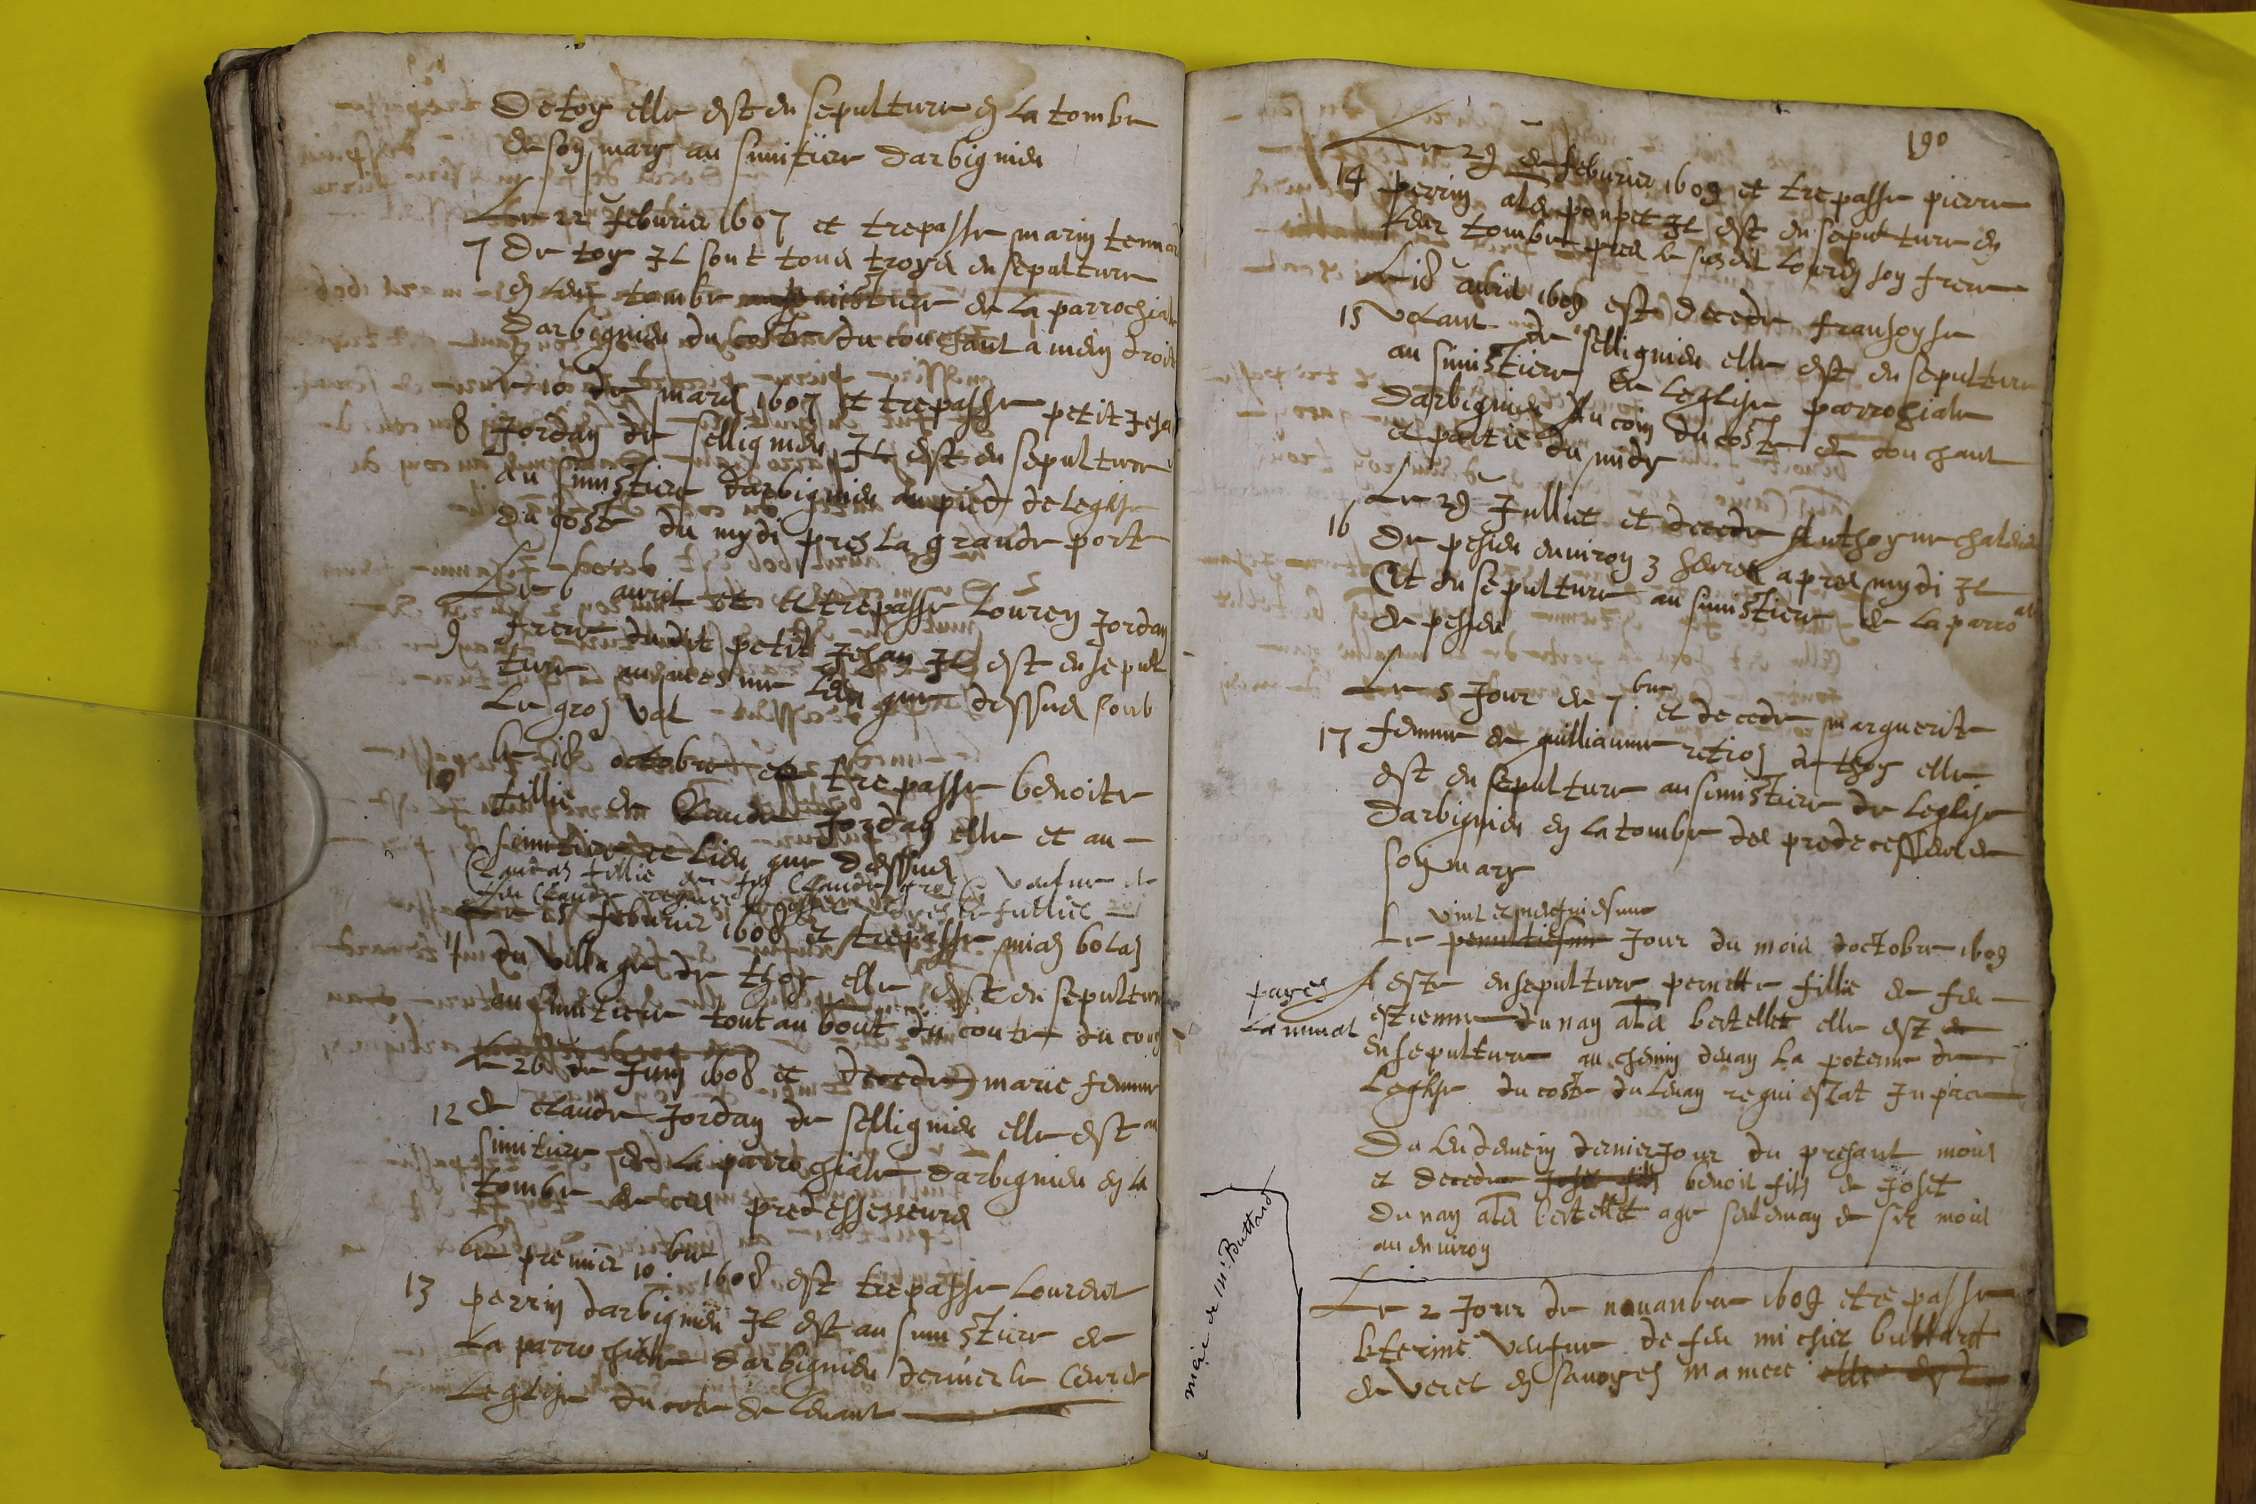 De toy elle est en sepulture en la tombe
de son mary au simitiere darbignieu
Le 22 feburier 1607 et trepasse marin tennar
7 De toy Il sont tous troys en sepulture
en leur tombe simistiere de la parrochiale
darbignieu du coste du couchant a mein droite
Le 10 de mars 1607 et trepasse petit Jehan
8 Jordan de sellignieu Il est en sepulture
au simistiere darbignieu au pied de leglise
du coste du mydi pres la grande porte
Le 6 avril et trepasse Louren Jordan
9 frere dudit petit Jehan Il est en sepul
ture au mesme lieu que dessus soub
Le gros val
Le 18 octobre et trepasse benoite
10 fillie de Claude Jordan elle et au
simitiere lieu que dessus
Claudaz fillie de feu Claude vefue de
feu Claude
Le 15 feburier 1608 et trepasse miaz bolaz
11 du village de thoy elle est en sepulture
au simitiere tout au bout du conte du couch
Le 26 de Juin 1608 et decedee marie femme
12 de claude Jordan de sellignieu elle est au
simitiere de la parrochiale darbignieu en la
tombe de ces predessesseurs
Le premier 10.bre 1608 est trepasse Lourent
13 perrin darbignieu Il est au simistiere de
La parrochiale darbignieu derrier le ceur de
Leglise du cote de levant
190
Le 29 de feburier 1609 et trepasse pierre
14 perrin als ponpet Il est en sepulture en
leur tombe pres le susdit Louren son frere
Le 18 avril 1609 est decede fransoyse
15 volant de sellignieu elle est en sepulture
au simistiere de leglise parrochiale
darbignieu Au coin du coste de couchant
et partie du midy
Le 29 Julliet et decede Anthoyne
16 De pesieu environ 3 heures apres mydi Il
Est en sepulture au simistiere de la parro ale
de pesieu
Le 5 Jour de 7.bre et decede marguerite
17 femme de guilliaume retioz de thoy elle
est en sepulture au simistiere de leglise
darbignieu en la tombe des predecesseurs de
son mary
vint et neufuiesme
Le penultiesme Jour du mois doctobre 1609
A este ensepulture pernette fillie de feu
payes
Laminal
estienne dunan als bertellet elle est
ensepulture au chemin devan la poterne de
Leglise du coste du levan requiescat In pace
Du lendemein dernier Jour du presant mois
et decede benoit filz de Joset
Dunan als bertellet age seuleman de six mois
au environ
Le 2 Jour de novanbre 1609 et trepasse
vefue de feu michiel buttard
de veret en savoyez ma mere elle est
mère de Mr. Buttard